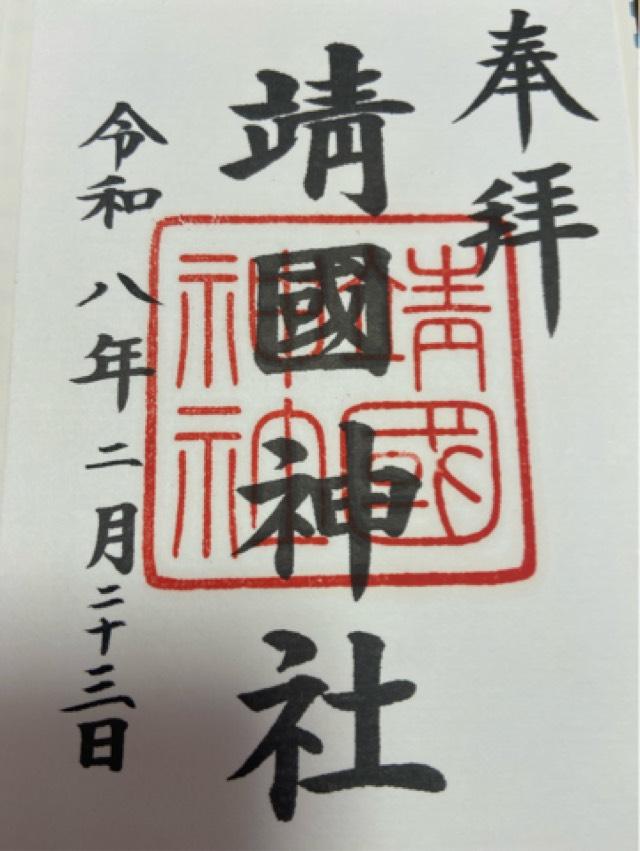 奉拝
靖國神社
靖國神社
令和八年二月二十三日